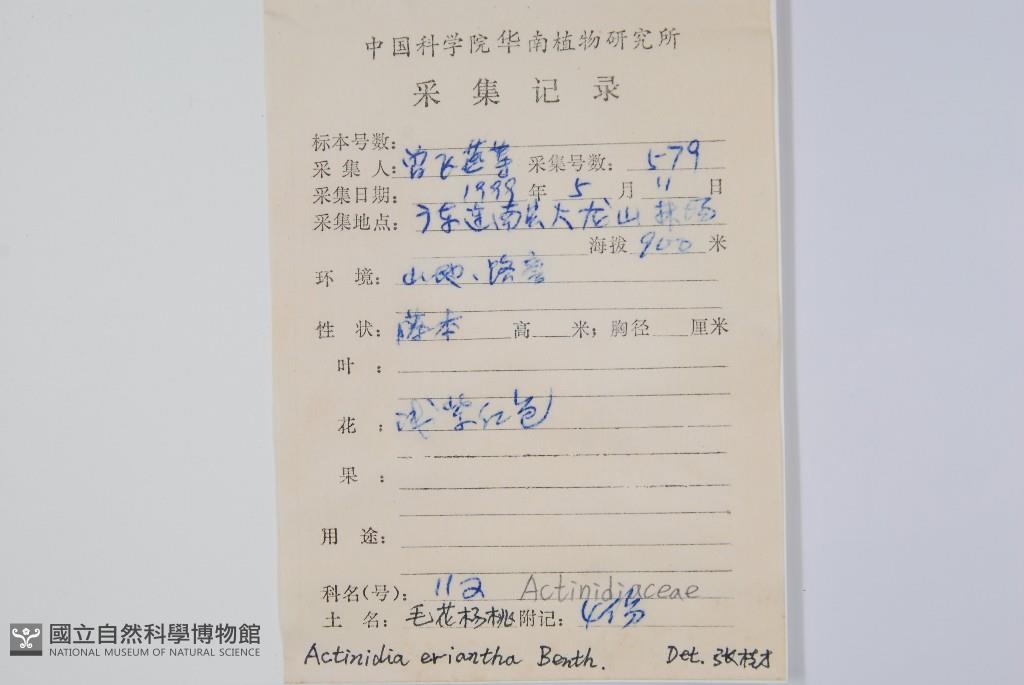 中国科学院华南植物研究所
采集记录
标本号数:
采集人: 曾飞燕等 采集号数: 579
采集日期: 1999年5月11日
采集地点: 广东连南县大龙山林场
海拨900米
环境: 山地、路旁
性状: 藤本 高 米; 胸径 厘米
叶:
花: 浅紫红色
果:
用途:
科名(号): 112 Actinidiaceae
土名: 毛花杨桃 附记: 4份
Actinidia eriantha Benth. Det. 张桂才
國立自然科學博物館
NATIONAL MUSEUM OF NATURAL SCIENCE